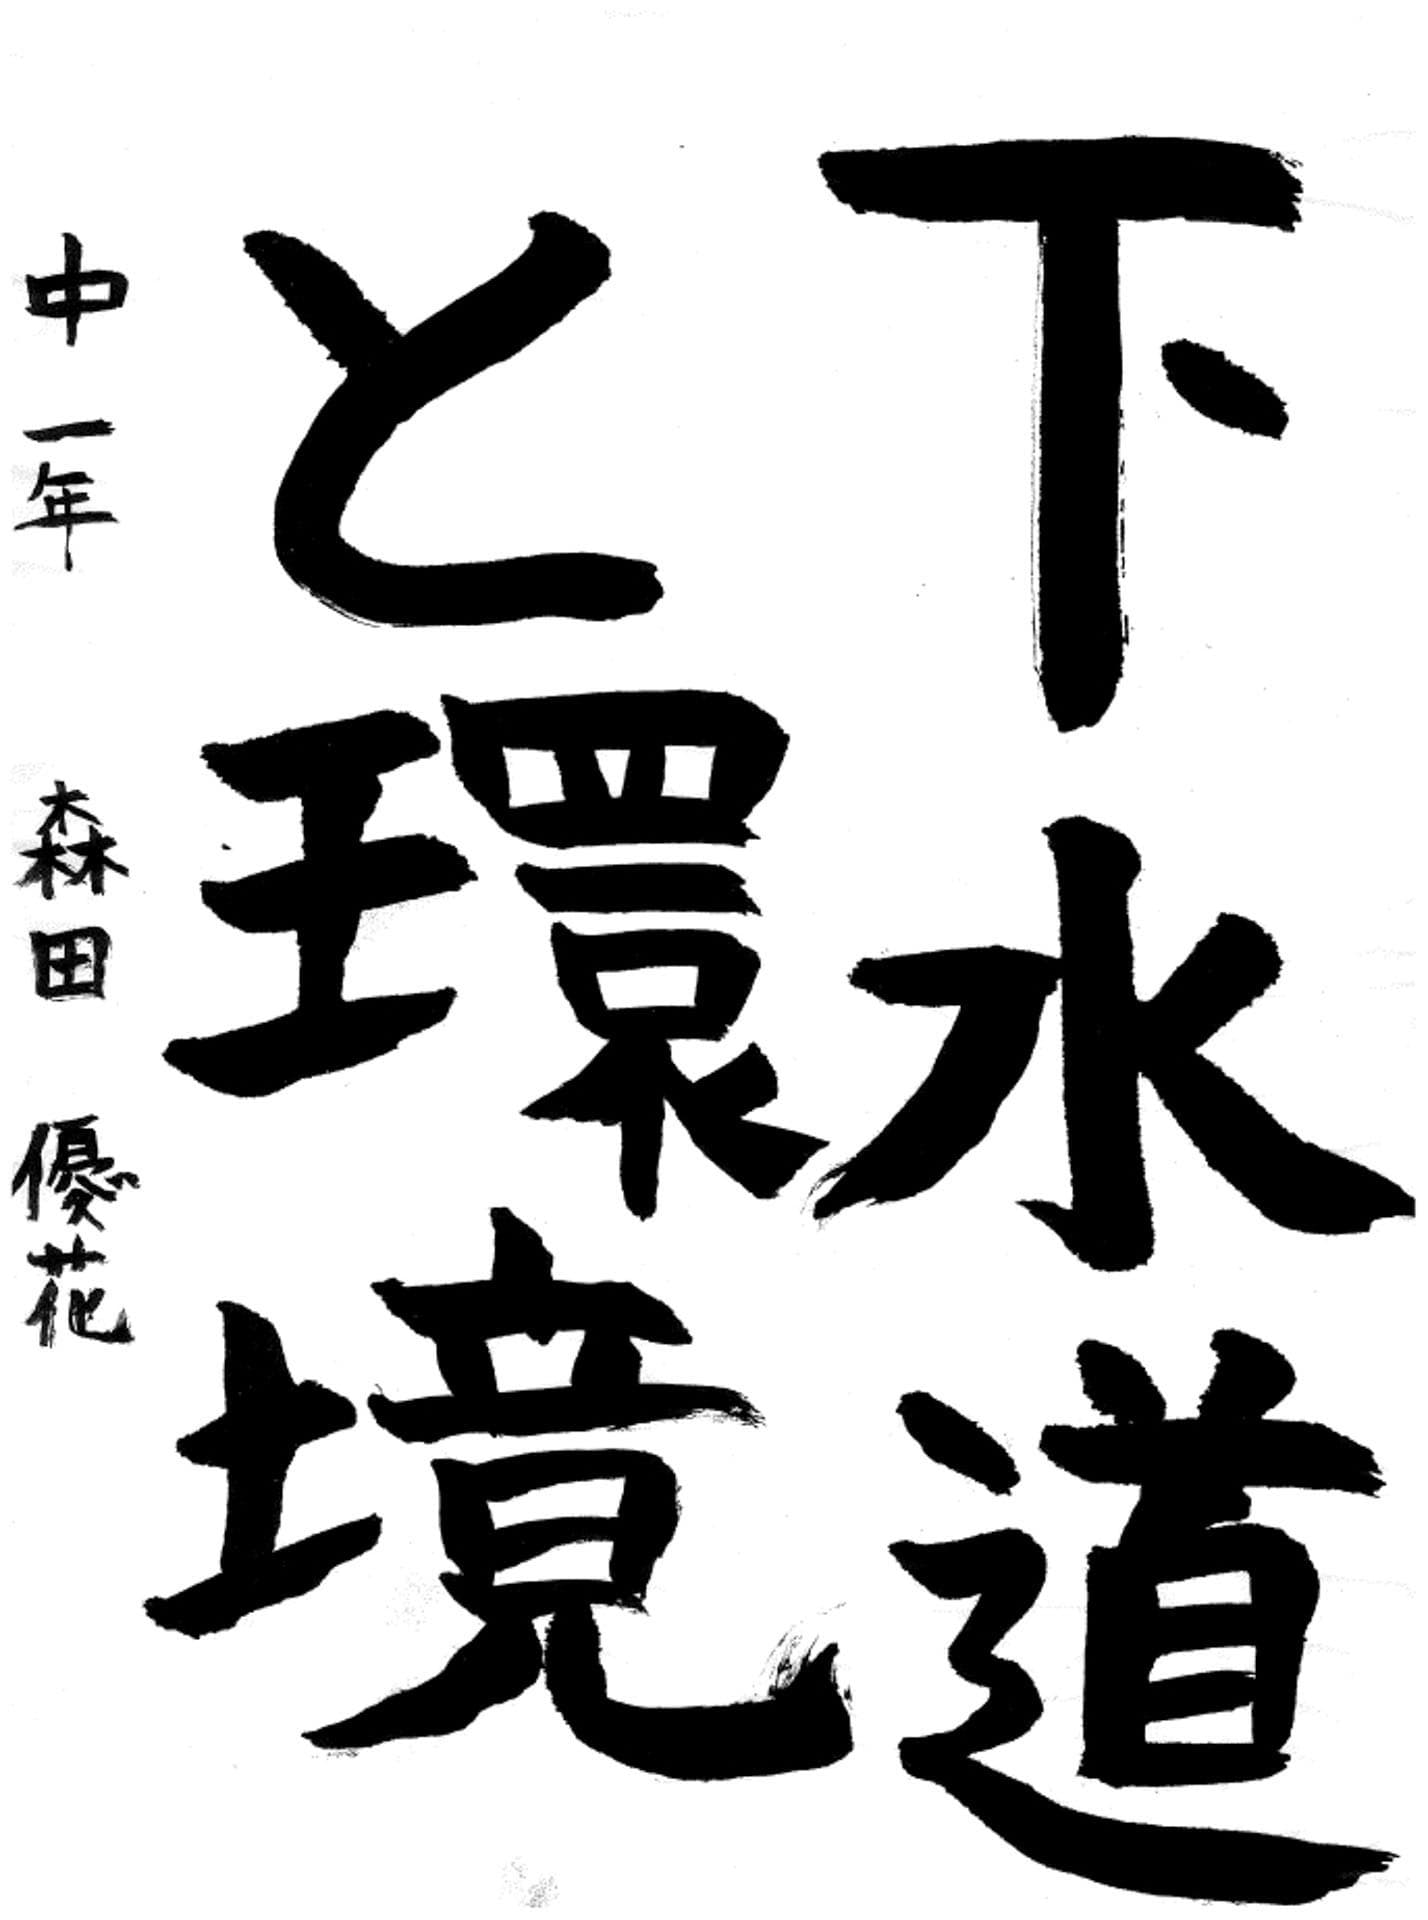 下水道
と環境
中一年 森田 優花